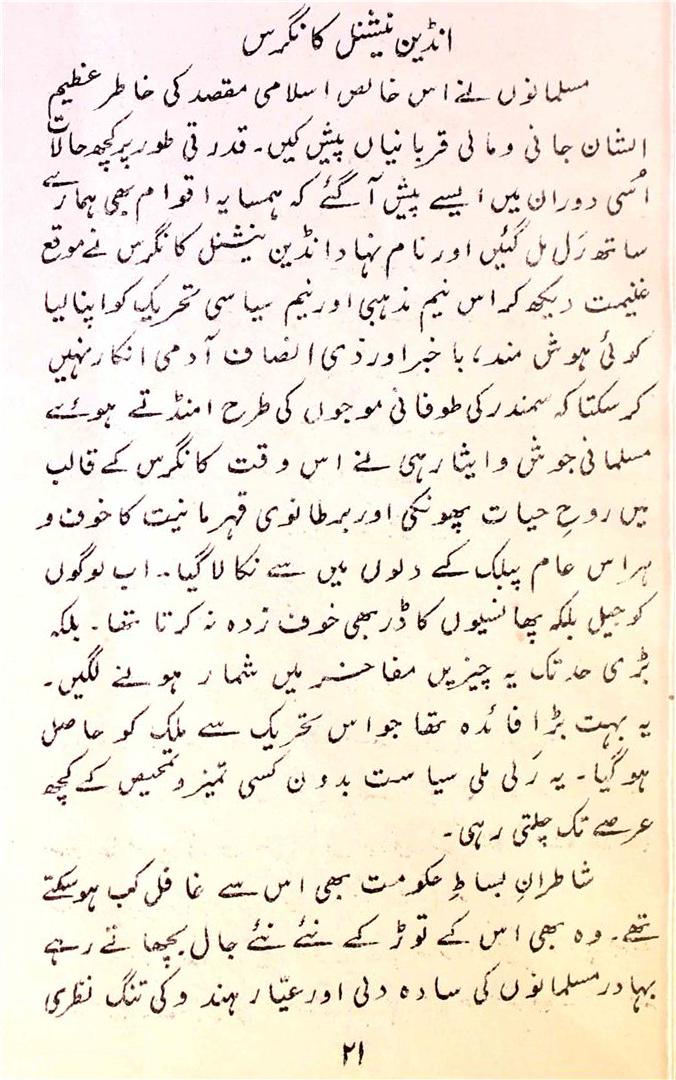 انڈین نیشنل کانگرس
مسلمانوں نے اس خالص اسلامی مقصد کی خاطر عظیم
الشان جانی و مالی قربانیاں پیش کیں۔ قدرتی طور پر کچھ حالات
اُسی دوران میں ایسے پیش آ گئے کہ ہمسایہ اقوام بھی ہمارے
ساتھ رَل مل گئیں اور نام نہاد انڈین نیشنل کانگرس نے موقع
غنیمت دیکھ کر اس نیم مذہبی اور نیم سیاسی تحریک کو اپنا لیا
کوئی ہوش مند، با خبر اور ذی انصاف آدمی انکار نہیں
کر سکتا کہ سمندر کی طوفانی موجوں کی طرح امنڈتے ہوئے
مسلمانی جوش و ایثار ہی نے اس وقت کانگرس کے قالب
میں روحِ حیات پھونکی اور برطانوی قہرمانیت کا خوف و
ہراس عام پبلک کے دلوں میں سے نکالا گیا۔ اب لوگوں
کو جیل بلکہ پھانسیوں کا ڈر بھی خوف زدہ نہ کرتا تھا۔ بلکہ
بڑی حد تک یہ چیزیں مفاخر میں شمار ہونے لگیں۔
یہ بہت بڑا فائدہ تھا جو اس تحریک سے ملک کو حاصل
ہو گیا۔ یہ رَلی ملی سیاست بدون کسی تمیز و تمحیص کے کچھ
عرصے تک چلتی رہی۔
شاطرانِ بساطِ حکومت بھی اس سے غافل کب ہو سکتے
تھے۔ وہ بھی اس کے توڑ کے نئے نئے جال بچھاتے رہے
بہادر مسلمانوں کی سادہ دلی اور عیّار ہندو کی تنگ نظری
۲۱